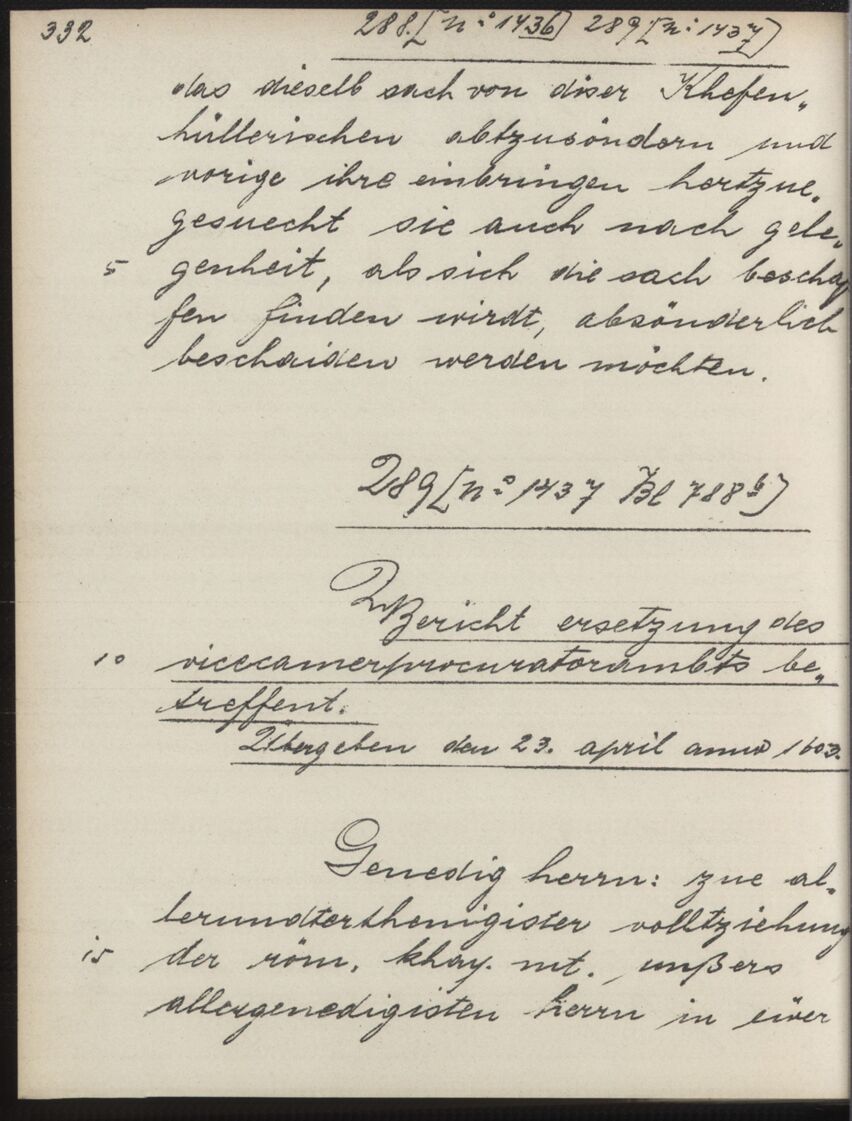 332
288. [n:o 1436] 289 [n:o 1437]
das dieselb sach von diser Khefen„
hüllerischen abtzusöndern und
vorige ihre einbringen hertzue„
gesuecht sie auch nach gele„
5 genheit, als sich die sach beschaf
fen finden wirdt, absönderlich
beschaiden werden möchten.
289 [n:o 1437 Bl 788b]
Bericht ersetzung des
10 vicecamerprocuratorambts be„
treffent.
Übergeben den 23. april anno 1603.
Genedig herrn: zue al„
lerundterthenigister volltziehung
15 der röm. khay. mt. unßers
allergenedigisten herrn in eüer